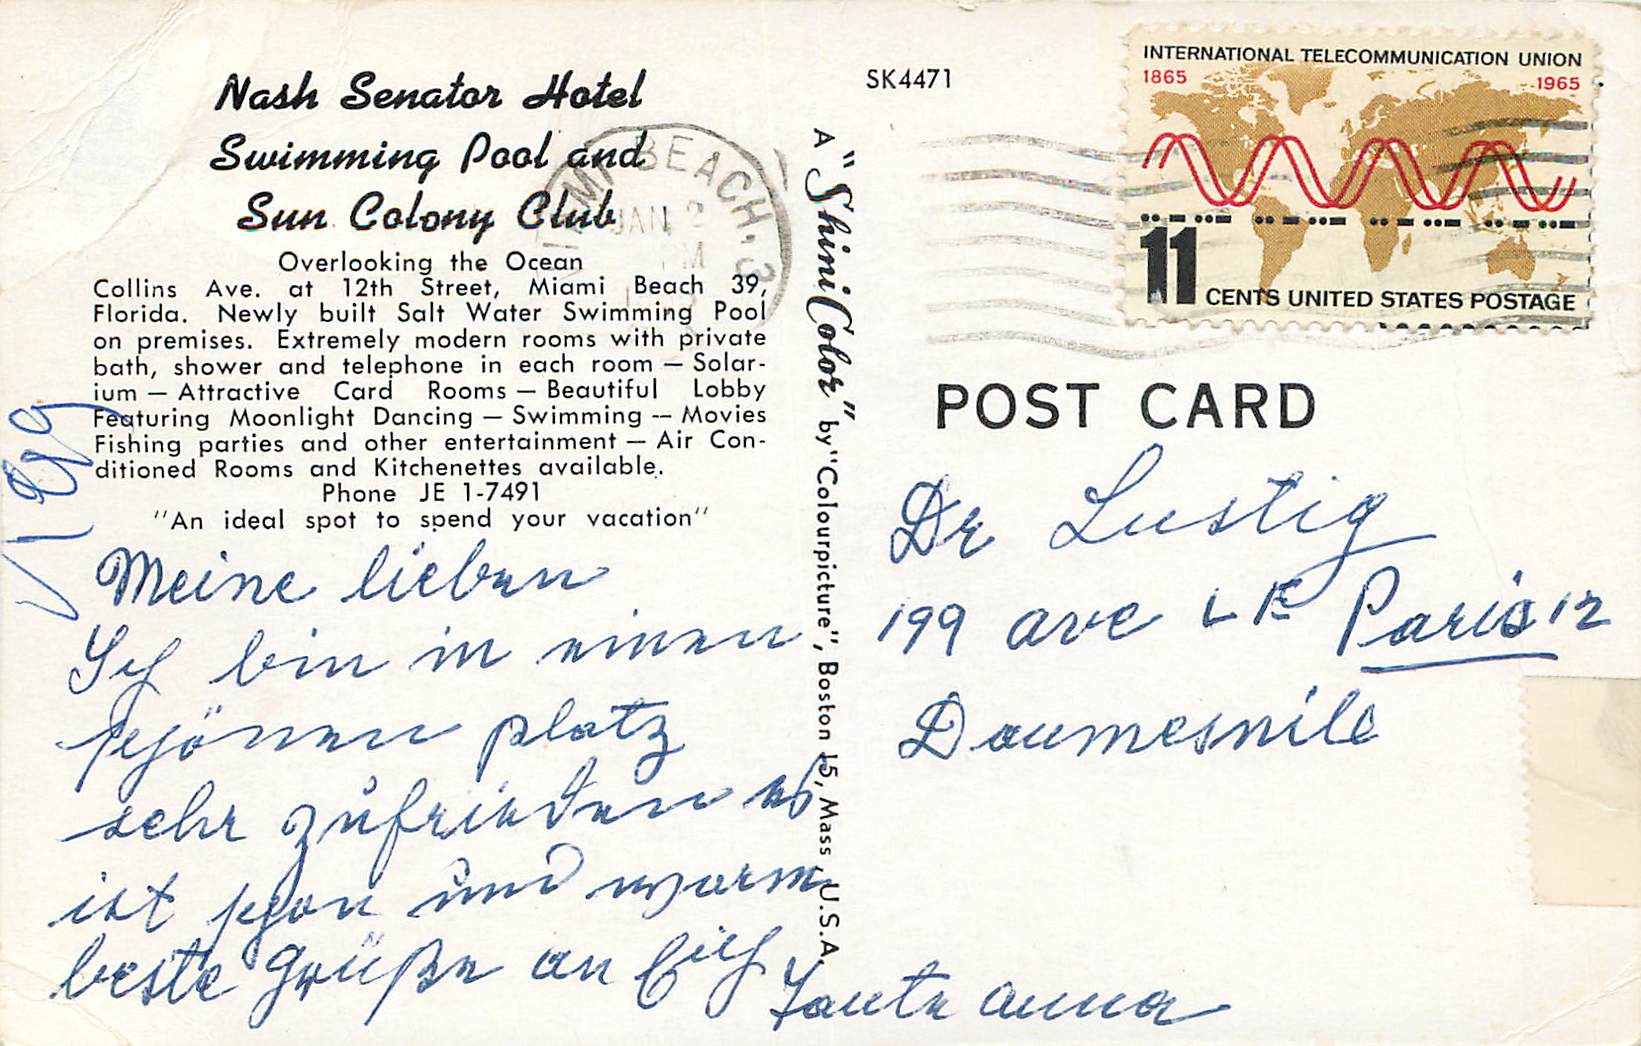 Nash Senator Hotel
Swimming Pool and
Sun Colony Club
Overlooking the Ocean
Collins Ave. at 12th Street, Miami Beach 39,
Florida. Newly built Salt Water Swimming Pool
on premises. Extremely modern rooms with private
bath, shower and telephone in each room — Solar-
ium — Attractive Card Rooms — Beautiful Lobby
Featuring Moonlight Dancing — Swimming -- Movies
Fishing parties and other entertainment — Air Con-
ditioned Rooms and Kitchenettes available.
Phone JE 1-7491
"An ideal spot to spend your vacation"
Meine lieben
Ich bin in einen
schönen platz
sehr zufrieden es
ist schon und warm
beste Grüße an Eich
Tante anna
A "ShiniColor" by "Colourpicture", Boston 15, Mass., U.S.A.
SK4471
MIAMI BEACH, 3
JAN 2
PM
INTERNATIONAL TELECOMMUNICATION UNION
1865
1965
11 CENTS UNITED STATES POSTAGE
POST CARD
Dr Lustig
199 ave Paris 12
Daumesnile